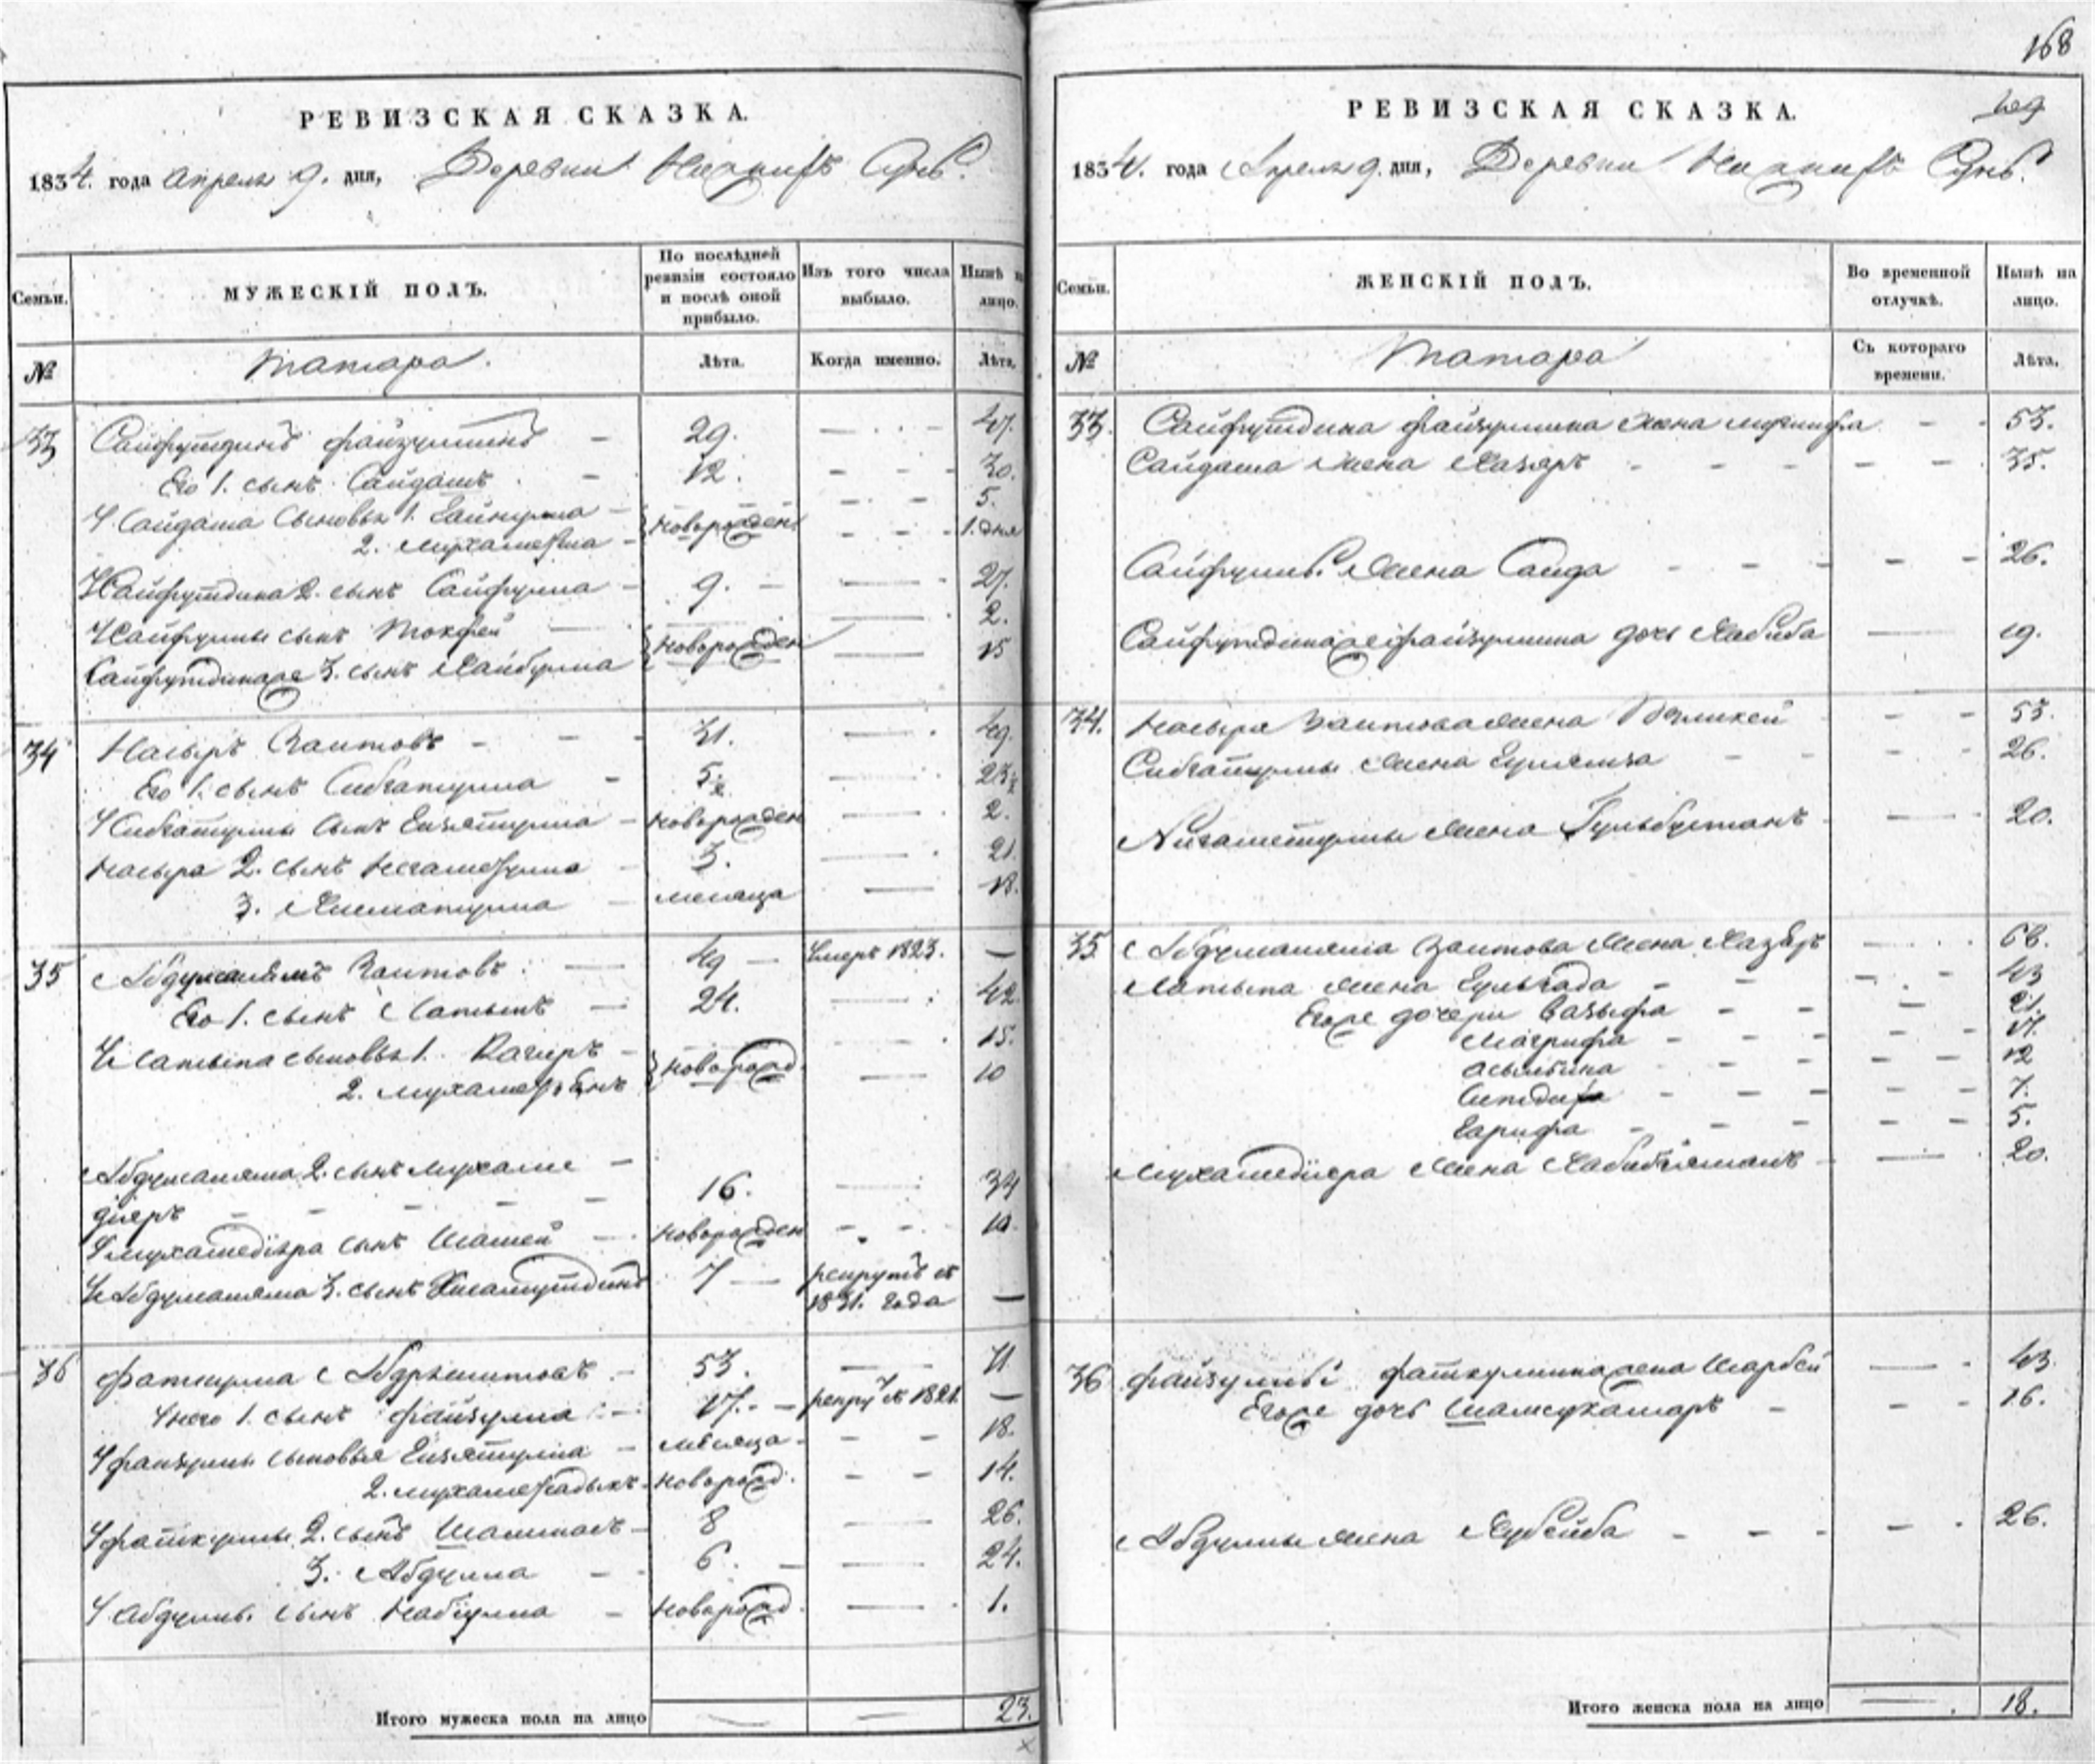 168
РЕВИЗСКАЯ СКАЗКА.
1834. года Апреля 9. дня, Деревни
Семьи.
МУЖЕСКІЙ ПОЛЪ.
По послѣдней ревизіи состояло и послѣ оной прибыло.
Изъ того числа выбыло.
Нынѣ на лицо.
№
Татара.
Лѣта.
Когда именно.
Лѣта.
33 Сайфутдинъ Файзуллинъ - 29. - 47.
Его 1. сынъ Сайдашъ - 12. - 30.
У Сайдаша сыновья 1. - 5.
2. - новорожден. - 1. дня
У Сайфутдина 2. сынъ Сайфулла - 9. - 27.
У Сайфуллы сынъ Токфей - 2.
Сайфутдинаже 3. сынъ Хайбулла - новорожден - 15
34 Насыръ Заитовъ - 31. - 49.
Его 1. сынъ Сибгатулла - 5½ - 23½
У Сибгатуллы сынъ Енаятулла - новорожден - 2.
Насыра 2. сынъ Негаметулла - 3. - 21
3. Хисматулла - месяца - 18.
35 Абдулманямъ Заитовъ - 49 - Умеръ 1823. -
Его 1. сынъ Латыпъ - 24. - 42.
У Латыпа сыновья 1. - 15.
2. - новорожд. - 10
Абдулманяма 2. сынъ Мухаме
діяръ - 16. - 34
У Мухамедіяра сынъ Шамей - новорожден - 10.
У Абдулманяма 3. сынъ - 7 - рекрутъ съ
1831. года -
36 Фаткулла - 53. - 71
У него 1. сынъ Файзулла - 17. - рекру съ 1821. -
У Файзуллы сыновья Енаятулла - месяца - 18.
2. Мухаметсадыкъ - новорожд. - 14.
У Фаткуллы 2. сынъ - 8 - 26.
3. Абдулла - 6. - 24.
У Абдулл. сынъ Набіулла - новорожд. - 1.
Итого мужеска пола на лицо - 23.
РЕВИЗСКАЯ СКАЗКА.
1834. года Апреля 9. дня, Деревни
Семьи.
ЖЕНСКІЙ ПОЛЪ.
Во временной отлучкѣ.
Нынѣ на лицо.
№
Татара
Съ котораго времени.
Лѣта.
33. Сайфутдина Файзуллина жена - 53.
Сайдаша жена - 35.
Сайфулл. жена Саида - 26.
Сайфутдинаже Файзуллина дочь Хабиба - 19.
34. Насыра Заитова жена - 53.
Сибгатуллы жена - 26.
Нигаметуллы жена Гульбустанъ - 20.
35 Абдулманяма Заитова жена - 68.
Латыпа жена - 43
Егоже дочери Вазыфа - 21.
Магрифа - 17.
12
7.
Гарифа - 5.
Мухамедіяра жена - 20.
36 Файзуллы Фаткуллина жена Шарбей - 43.
Егоже дочь Шамсукамаръ - 16.
Абдуллы жена - 26.
Итого женска пола на лицо - 18.